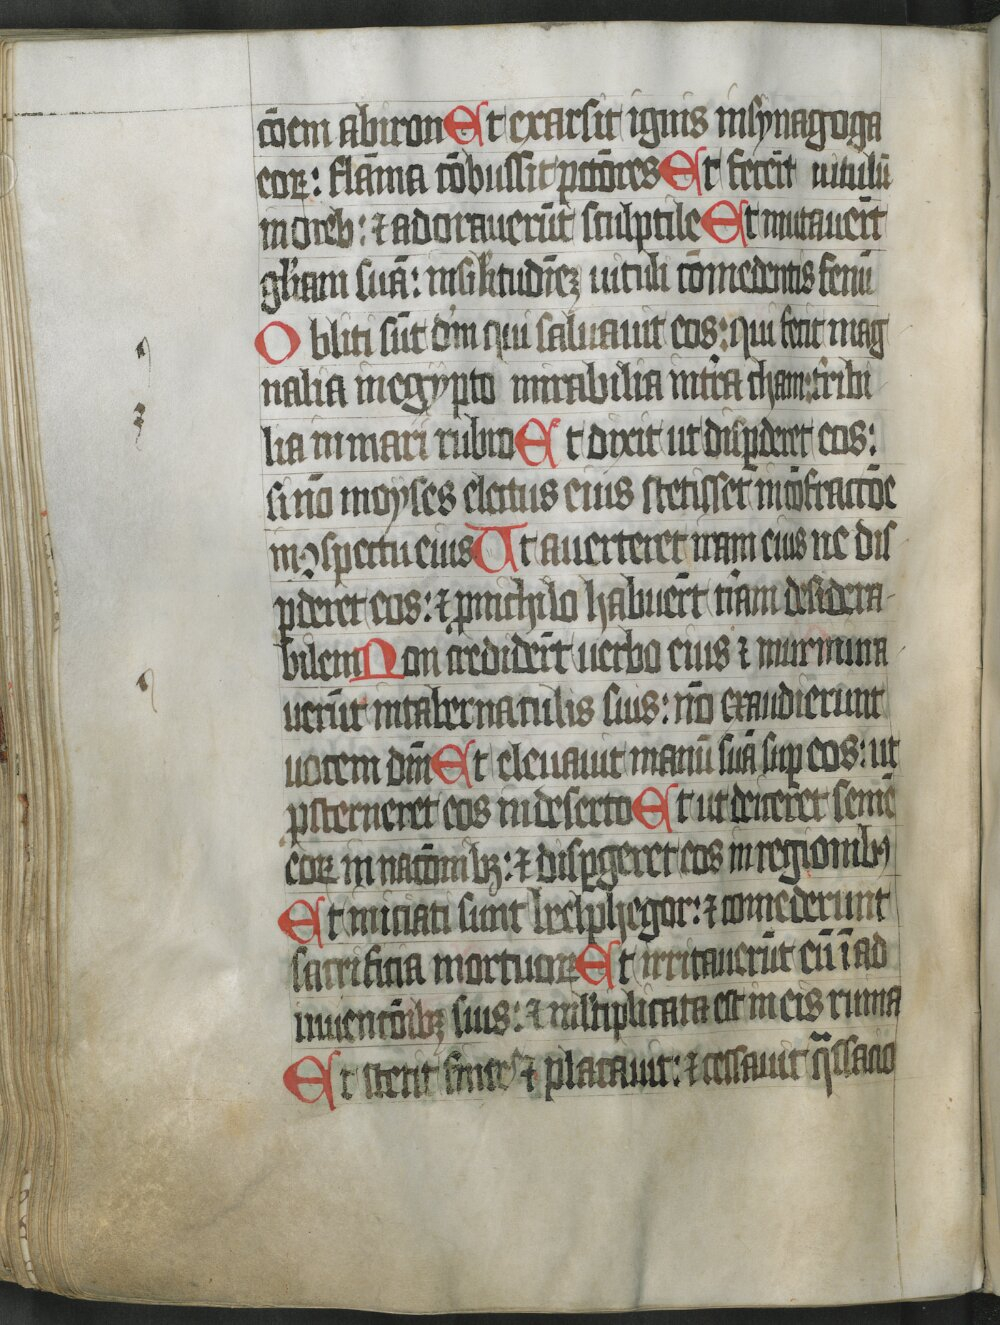 c̄oem abiron Et exarsit ignis insynagoga
eoꝝ: flāma c̄obussit pctōres Et fecert̄ uitulū
inoreb: ⁊ adorauerūt sculptile Et mutauert̄
gl̄iam suā: insilitudīeꝫ uituli cōmedentis fenū
Obliti sūt dm̄ qui saluauit eos: qui fecit mag
nalia inegypto mirabilia intr̄a cham: t̄ribi
lia inmari rubro Et dixit ut disꝑderet eos:
si nō moyses electus eius stetisset incōfractōe
inↄspectu eius Ut auerteret iram eius ne dis
ꝑderet eos: ⁊ ꝓnichilo habuert̄ tr̄am desidera-
bilem Non credidert̄ uerbo eius ⁊ murmura
uerūt intabernaculis suis: nō exaudierunt
uocem dn̄i Et eleuauit manū suā suꝑ eos: ut
ꝓsterneret eos indeserto Et ut deiceret semē
eoꝝ in nacōnibꝫ: ⁊ dispgeret eos inregionibꝫ
Et iniciati sunt beelphegor: ⁊ comederunt
sacrificia mortuoꝝ Et irritauerūt eū ī ad
inuencōibꝫ suis: ⁊ ml̄tiplicata est in eis ruina
Et stetit finees ⁊ placauit: ⁊ cessauit q̄ssacio